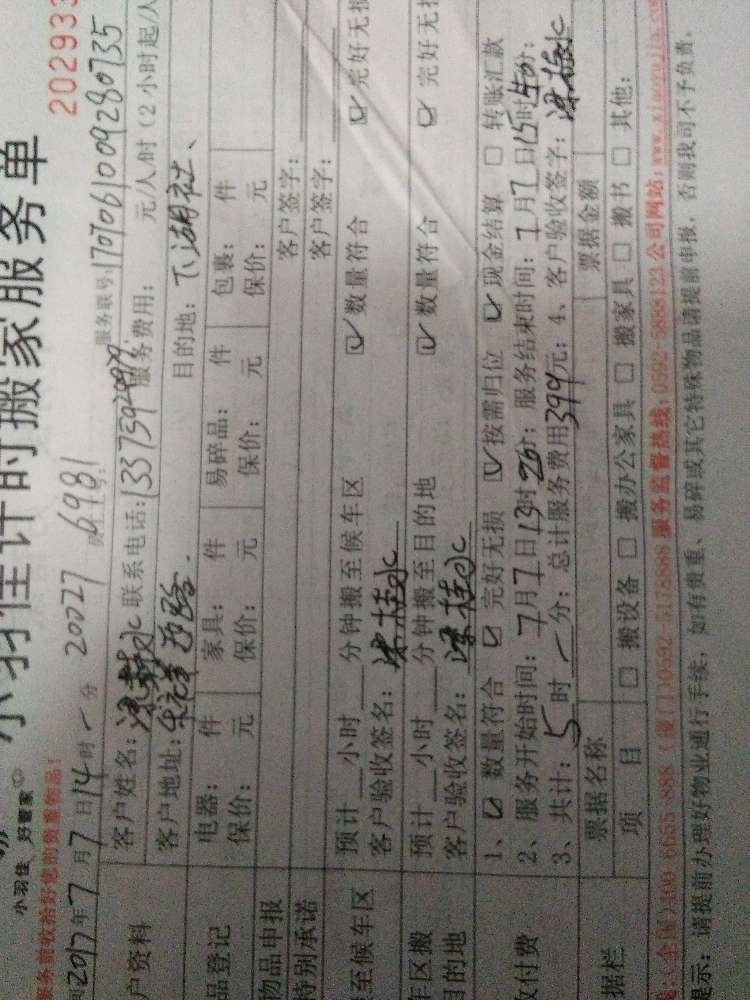 小羽佳计时搬家服务单
小羽佳 好管家
202933
服务前收拾好您的贵重物品!
2017年7月7日14时 分 20027 6981
服务联号:170706100928 0735
户资料
客户姓名: 联系电话:13375949 服务费用: 元/人/时(2小时起/人
客户地址: 西路 目的地:下湖社、
品登记
电器: 件 家具: 件 易碎品: 件 包裹: 件
保价: 元 保价: 元 保价: 元 保价: 元
物品申报 客户签字:
特别承诺 客户签字:
至候车区
预计 小时 分钟搬至候车区 数量符合 完好无损
客户验收签名:
车区搬
目的地
预计 小时 分钟搬至目的地 数量符合 完好无
客户验收签名:
收付费
1、 数量符合 完好无损 按需归位 现金结算 转账汇款
2、服务开始时间:7月7日13时20分; 服务结束时间:7月7日15时40分;
3、共计:5时 分; 总计服务费用399元; 4、客户验收签字:
据栏
票据名称 票据金额
项 目 搬设备 搬办公家具 搬家具 搬书 其他:
全国)400-6655-888 (厦门)0592-5178888 服务监督热线:0592-5888123 公司网站:www.xiaoyujia.co
提示: 请提前办理好物业通行手续, 如有贵重、易碎或其它特殊物品请提前申报, 否则我司不予负责。